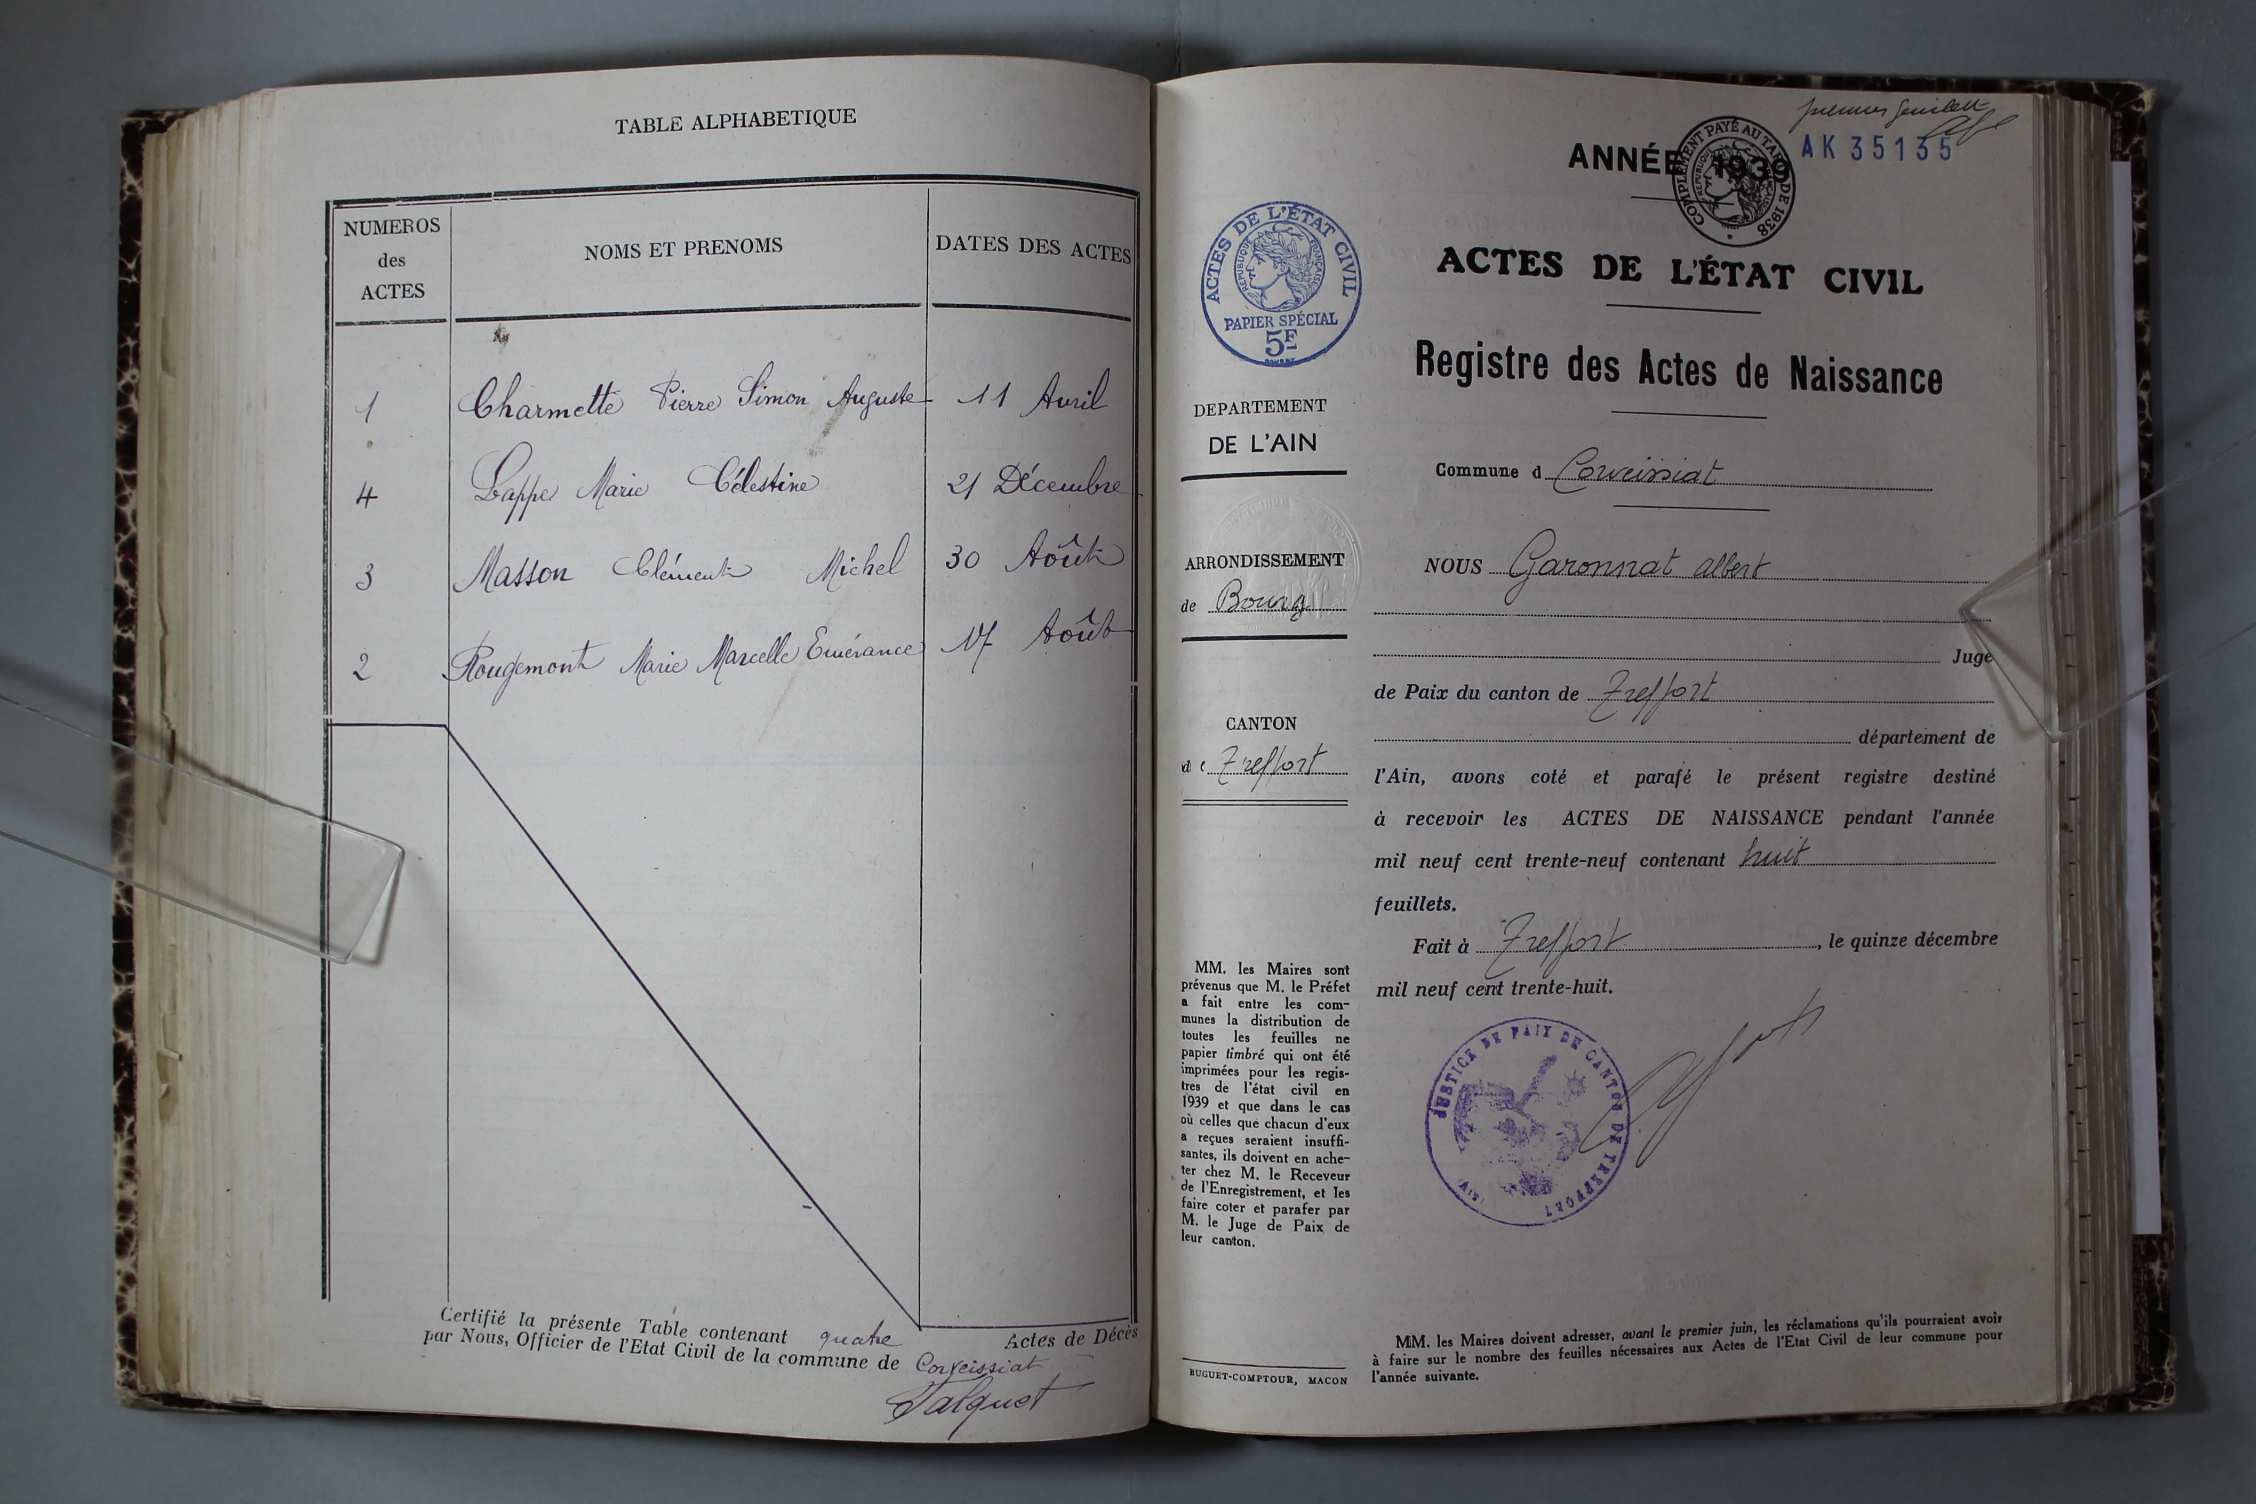 TABLE ALPHABETIQUE
NUMEROS
des
ACTES
NOMS ET PRENOMS
DATES DES ACTES
1 Charmette Pierre Simon Auguste 11 Avril
4 Lappe Marie Célestine 21 Décembre
3 Masson Clément Michel 30 Août
2 Rougemont Marie Marcelle Emérance 17 Août
Certifié la présente Table contenant quatre Actes de Décès
par Nous, Officier de l'Etat Civil de la commune de Corveissiat
Jalquet
premier feuillet
AK 35135
ANNÉE 1939
COMPLÉMENT PAYÉ AU TARIF DE 1938
RÉPUBLIQUE FRANÇAISE
ACTES DE L'ÉTAT CIVIL
RÉPUBLIQUE FRANÇAISE
PAPIER SPÉCIAL
5F
DEPARTEMENT
DE L'AIN
ARRONDISSEMENT
de Bourg
CANTON
de Treffort
MM. les Maires sont
prévenus que M. le Préfet
a fait entre les com-
munes la distribution de
toutes les feuilles ne
papier timbré qui ont été
imprimées pour les regis-
tres de l'état civil en
1939 et que dans le cas
où celles que chacun d'eux
a reçues seraient insuffi-
santes, ils doivent en ache-
ter chez M. le Receveur
de l'Enregistrement, et les
faire coter et parafer par
M. le Juge de Paix de
leur canton.
BUGUET-COMPTOUR, MACON
ACTES DE L'ÉTAT CIVIL
Registre des Actes de Naissance
Commune d Corveissiat
NOUS Garonnat Albert
Juge
de Paix du canton de Treffort
département de
l'Ain, avons coté et parafé le présent registre destiné
à recevoir les ACTES DE NAISSANCE pendant l'année
mil neuf cent trente-neuf contenant huit
feuillets.
Fait à Treffort, le quinze décembre
mil neuf cent trente-huit.
JUSTICE DE PAIX DU CANTON DE TREFFORT
(AIN)
MM. les Maires doivent adresser, avant le premier juin, les réclamations qu'ils pourraient avoir
à faire sur le nombre des feuilles nécessaires aux Actes de l'Etat Civil de leur commune pour
l'année suivante.